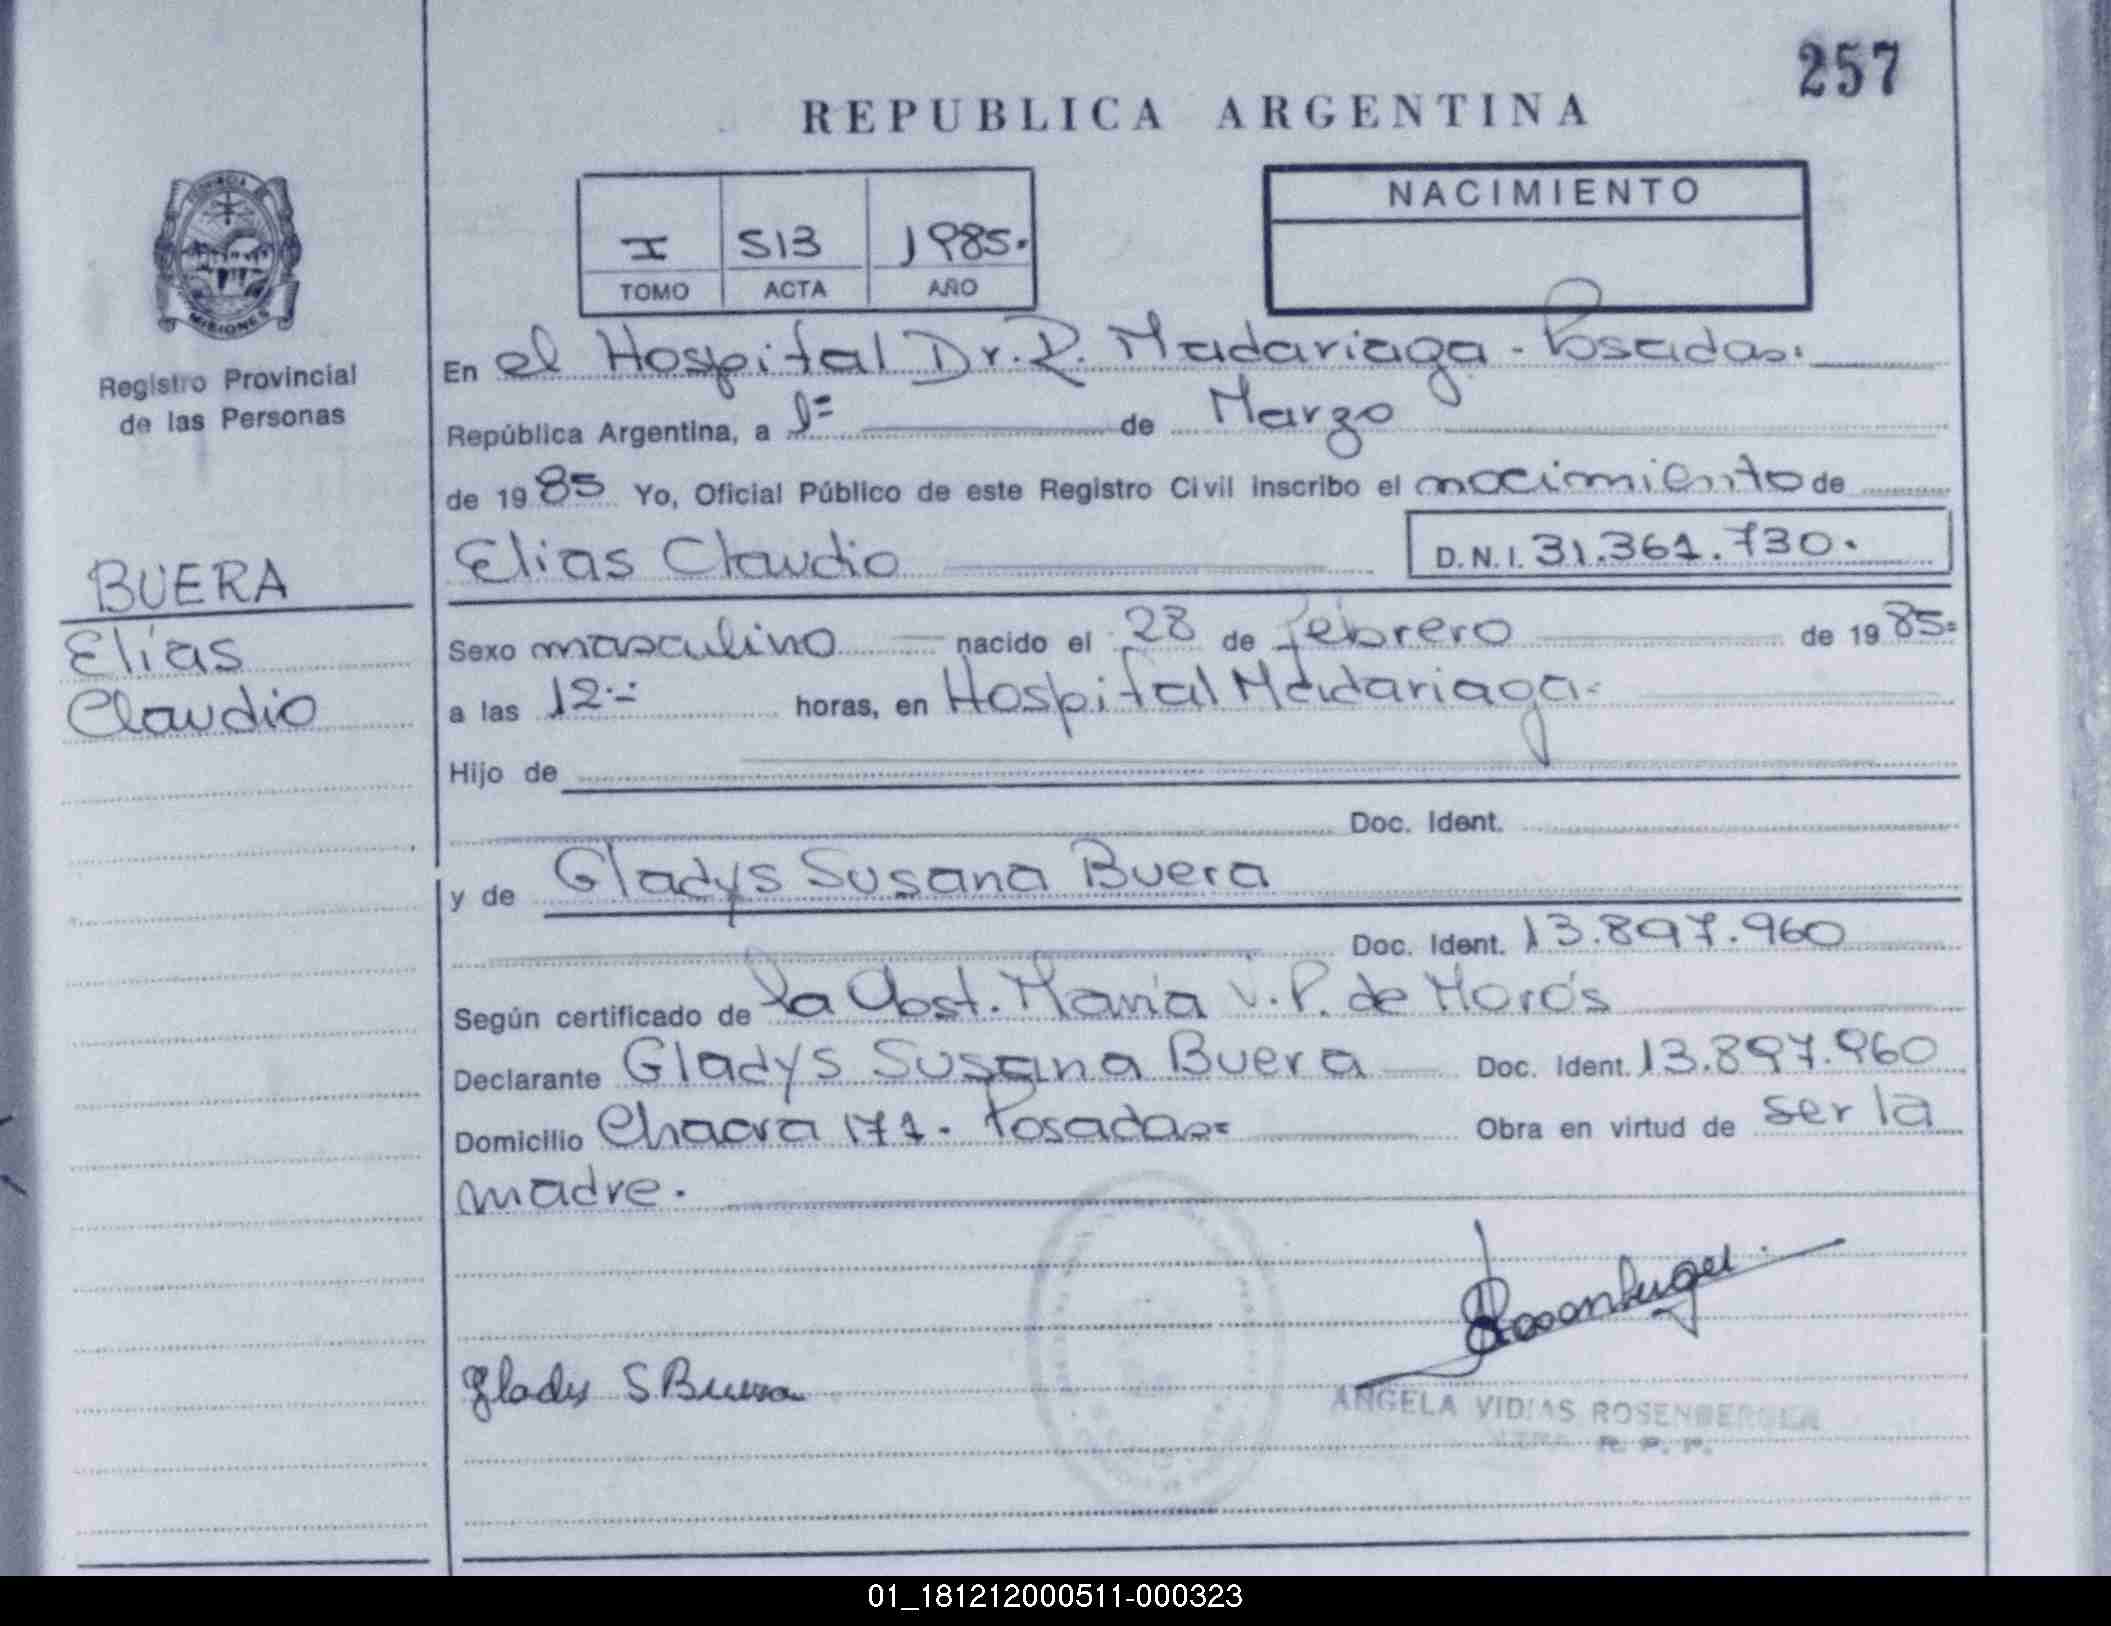 257
REPUBLICA ARGENTINA
PROVINCIA DE
MISIONES
Registro Provincial
de las Personas
I 513 1985.
TOMO ACTA AÑO
NACIMIENTO
En el Hospital Dr. R. Madariaga - Posadas.
República Argentina, a 1= de Marzo
de 1985 Yo, Oficial Público de este Registro Civil inscribo el nacimiento de
Elias Claudio D.N.I. 31.361.730.
BUERA
Elías
Claudio
Sexo masculino nacido el 28 de febrero de 1985=
a las 12.- horas, en Hospital Madariaga-
Hijo de
Doc. Ident.
y de Gladys Susana Buera
Doc. Ident. 13.897.960
Según certificado de la Obst. María V. P. de Morós
Declarante Gladys Susana Buera Doc. Ident. 13.897.960
Domicilio Chacra 171. Posadas= Obra en virtud de ser la
madre.
Gladys S Buera
ANGELA VIDIAS ROSENBERGER
R. P. P.
01_181212000511-000323